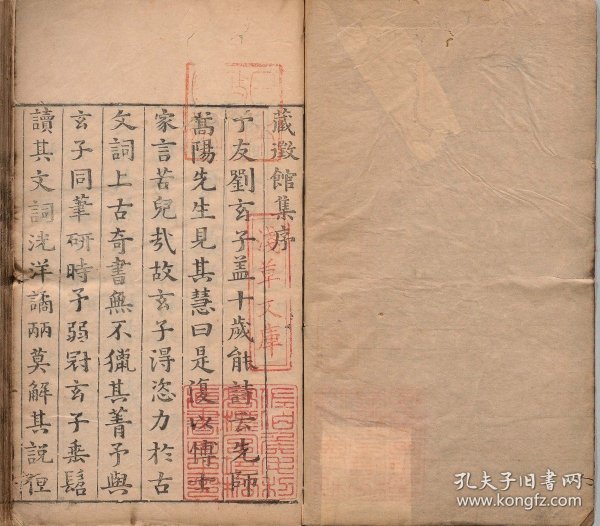 藏徵館集序
予友劉玄子葢十歲能詩云先師
嵩陽先生見其慧曰是復以愽士
家言苦兒㢤故玄子淂恣力於古
文詞上古竒書無不獵其菁予與
玄子同筆研時予弱冠玄子垂髫
讀其文詞洸洋譎㓋莫解其說
淺草文庫
孔夫子旧书网
www.kongfz.com